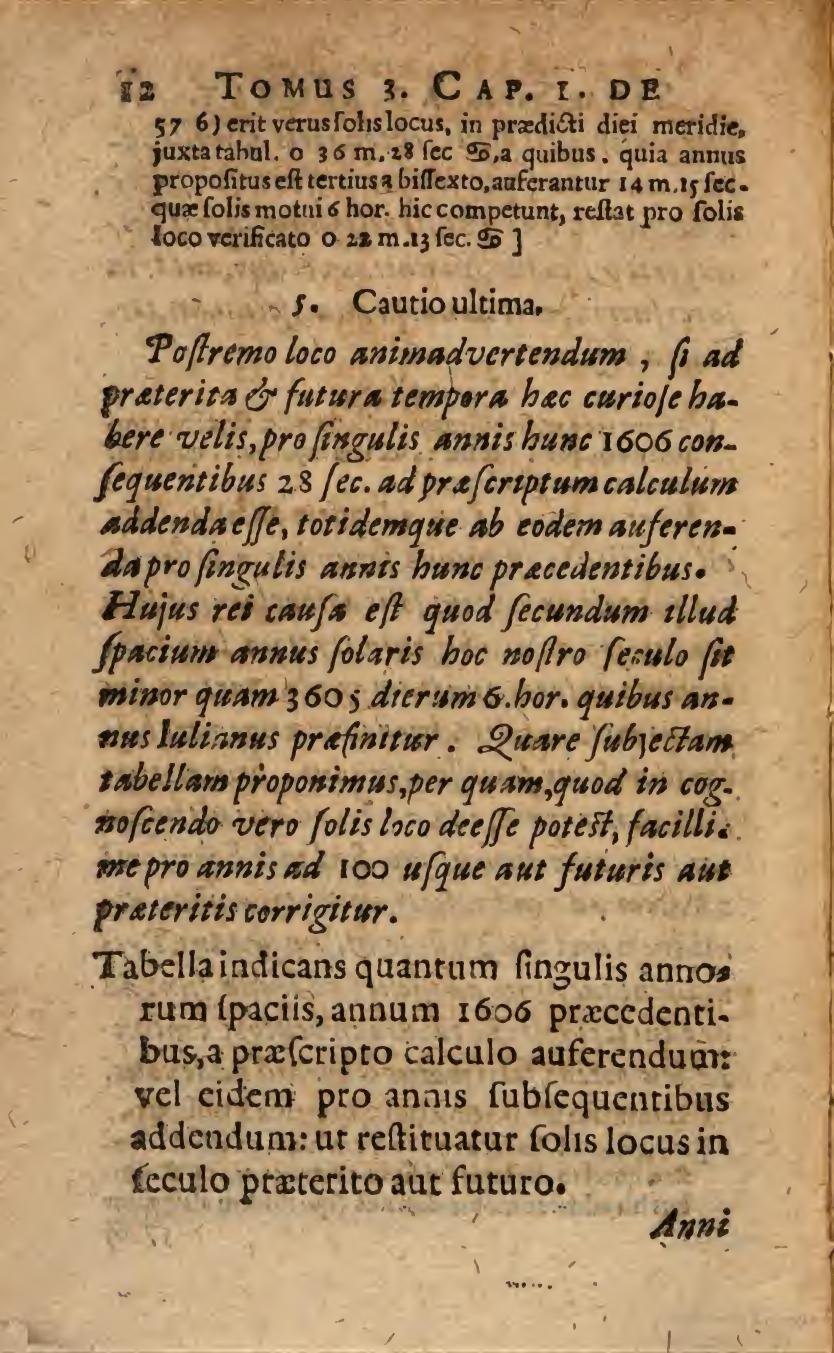 12 TOMUS 3. CAP. 1. DE
57 6) erit verus solis locus, in prædicti diei meridie,
juxta tabul. 0 36 m. 28 sec ♋, a quibus. quia annus
propositus est tertius a bissexto, auferantur 14 m. 15 sec.
quæ solis motui 6 hor. hic competunt, restat pro solis
loco verificato 0 22 m. 13 sec. ♋ ]
5. Cautio ultima.
Postremo loco animadvertendum , si ad
præterita & futura tempora hæc curiose ha-
bere velis, pro singulis annis hunc 1606 con-
sequentibus 28 sec. ad præscriptum calculum
addenda esse, totidemque ab eodem auferen-
da pro singulis annis hunc præcedentibus.
Hujus rei causa est quod secundum illud
spacium annus solaris hoc nostro seculo sit
minor quam 3605 dierum 6. hor. quibus an-
nus Iulianus præfinitur . Quare subjectam
tabellam proponimus, per quam, quod in cog-
noscendo vero solis loco deesse potest, facilli-
me pro annis ad 100 usque aut futuris aut
præteritis corrigitur.
Tabella indicans quantum singulis anno-
rum spaciis, annum 1606 præcedenti-
bus, a præscripto calculo auferendum:
vel eidem pro annis subsequentibus
addendum: ut restituatur solis locus in
seculo præterito aut futuro.
Anni